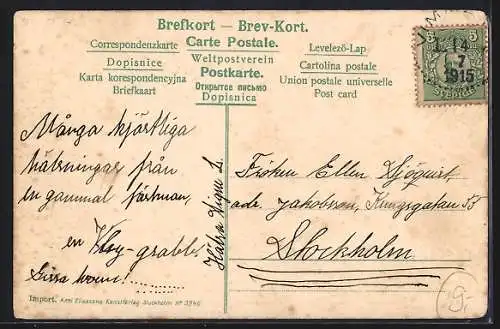 Brefkort — Brev-Kort.
Correspondenzkarte
Carte Postale.
Levelező-Lap
Dopisnice
Weltpostverein
Cartolina postale
Karta korespondencyjna
Postkarte.
Union postale universelle
Briefkaart
Открытое письмо
Post card
Dopisnica
5 5
14
7
1915
Många hjärtliga
hälsningar från
en gammal
en
Gissa
Hälsa Signe L.
Fröken Ellen Sjöquist
adr. Jakobsson, Kungsgatan 55
Stockholm
Import. Axel Eliassons Konstförlag Stockholm Nº
9.-